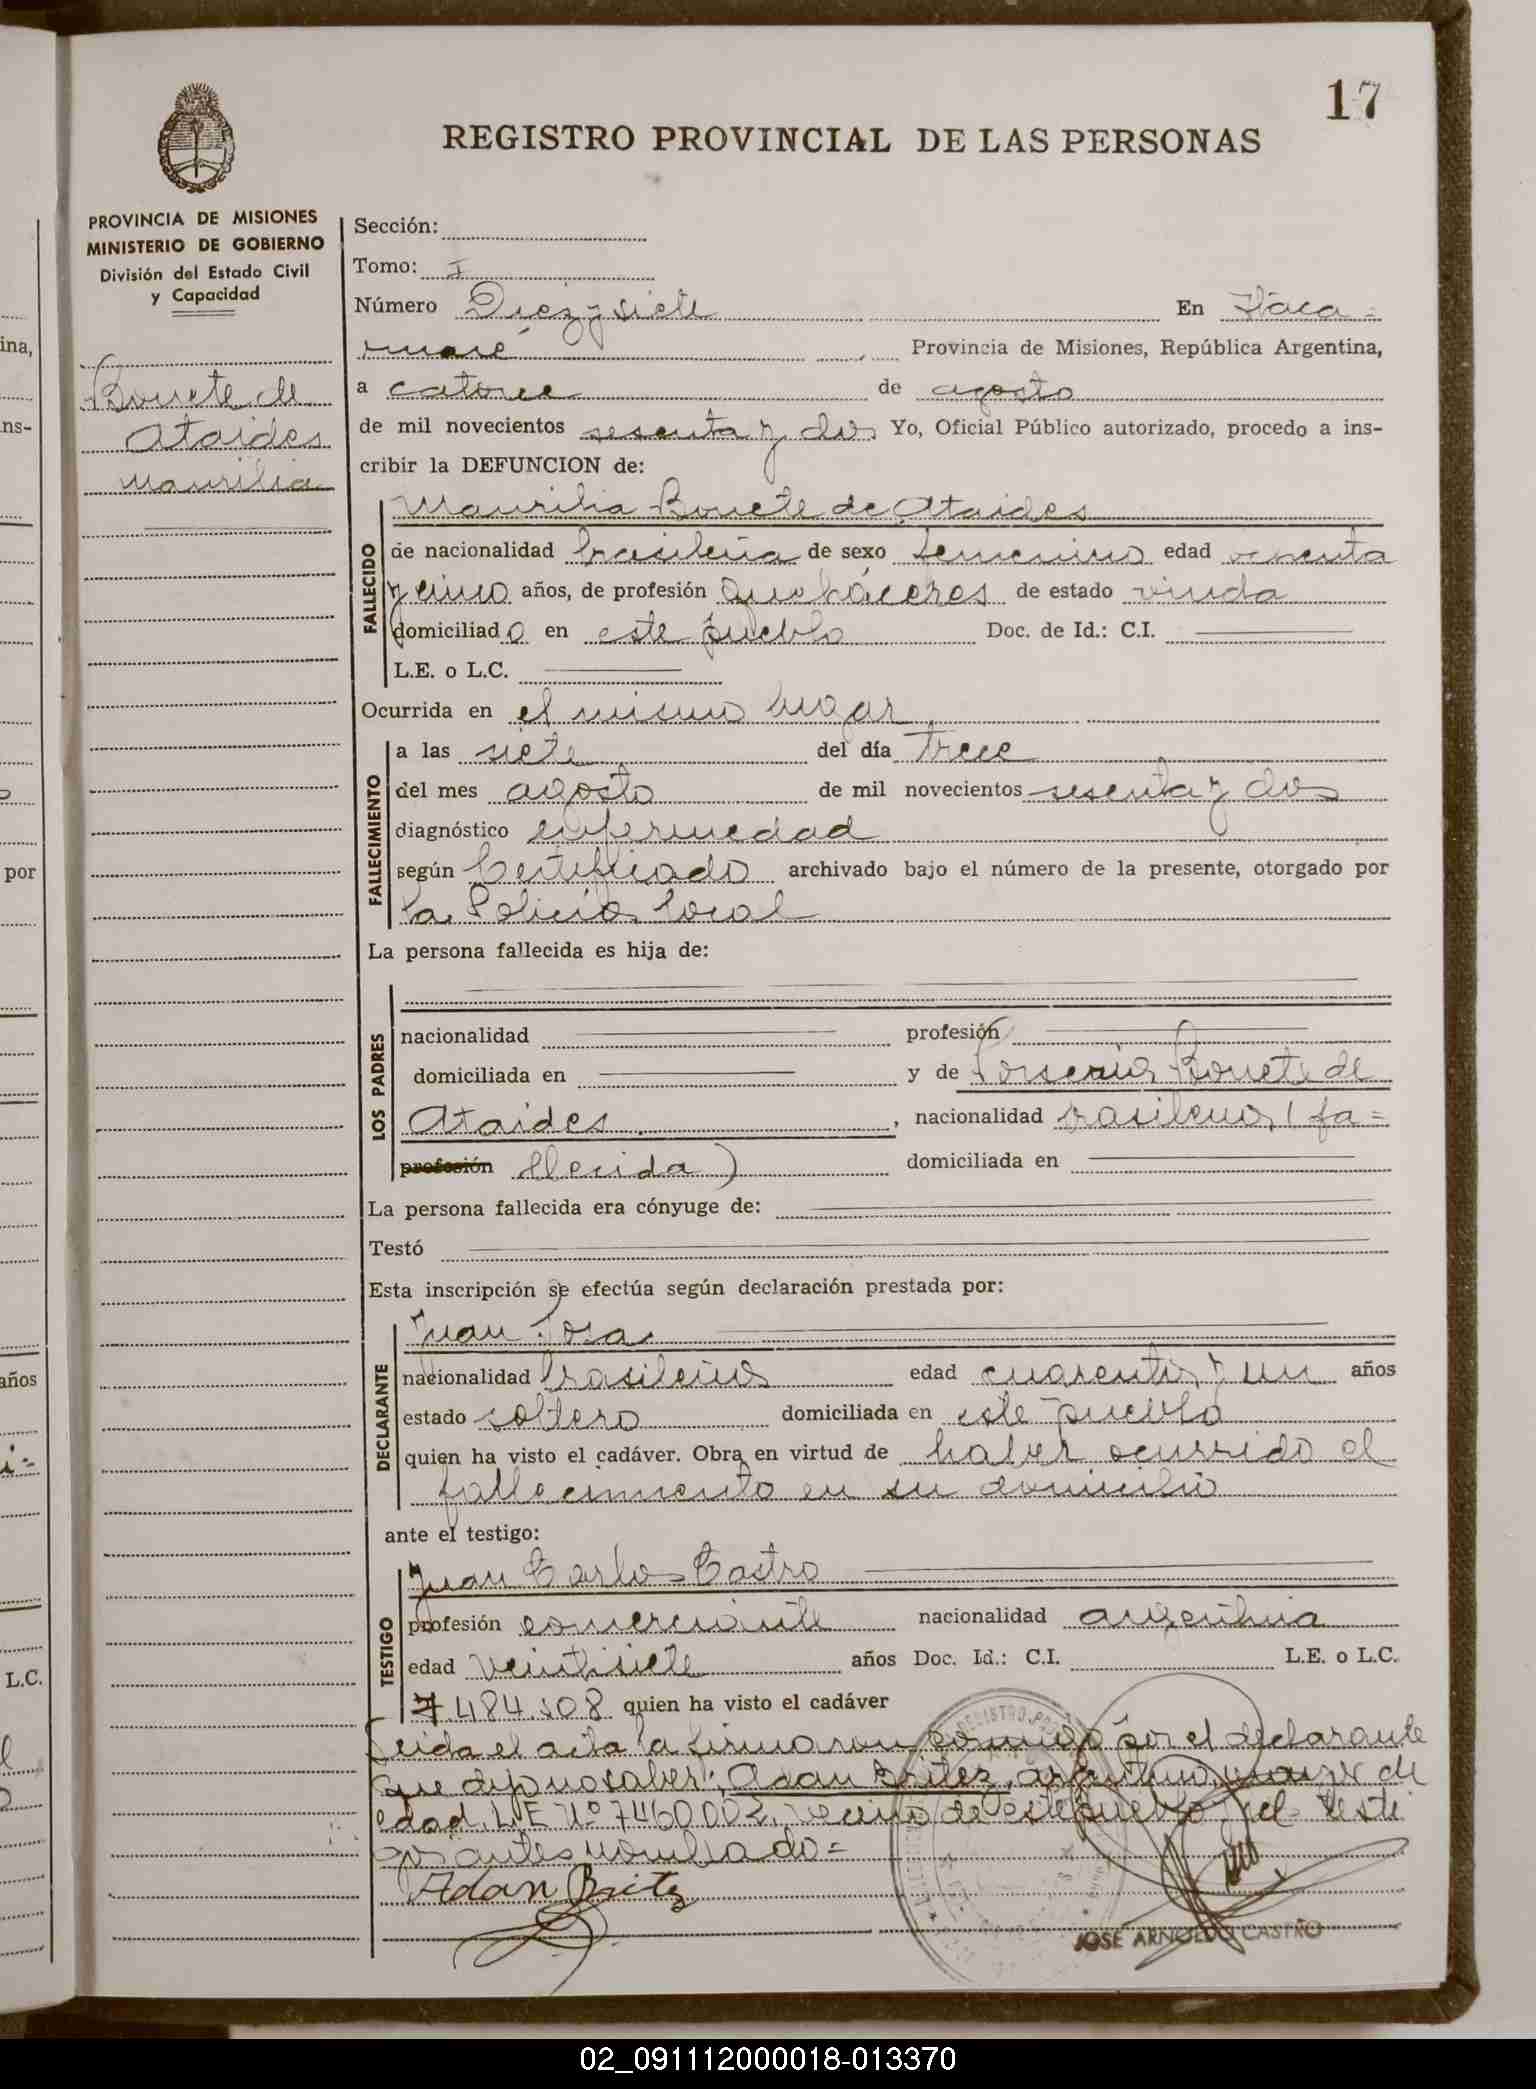 17
REGISTRO PROVINCIAL DE LAS PERSONAS
PROVINCIA DE MISIONES
MINISTERIO DE GOBIERNO
División del Estado Civil
y Capacidad
Bouete de
Ataides
Maurilia
Sección:
Tomo: I
Número Diez y siete En Itaca-
ruaré Provincia de Misiones, República Argentina,
a catorce de agosto
de mil novecientos sesenta y dos Yo, Oficial Público autorizado, procedo a ins-
cribir la DEFUNCION de:
FALLECIDO
Maurilia Bouete de Ataides
de nacionalidad brasileña de sexo femenino edad
y cinco años, de profesión quehaceres de estado viuda
domiciliado en este pueblo Doc. de Id.: C.I.
L.E. o L.C.
Ocurrida en el mismo lugar
FALLECIMIENTO
a las siete del día trece
del mes agosto de mil novecientos sesenta y dos
diagnóstico enfermedad
según Certificado archivado bajo el número de la presente, otorgado por
la Policía local
La persona fallecida es hija de:
LOS PADRES
nacionalidad profesión
domiciliada en y de Bouete de
Ataides, nacionalidad brasilena (fa=
profesión llecida) domiciliada en
La persona fallecida era cónyuge de:
Testó
Esta inscripción se efectúa según declaración prestada por:
DECLARANTE
Juan
nacionalidad brasileño edad cuarenta y un años
estado soltero domiciliada en este pueblo
quien ha visto el cadáver. Obra en virtud de haber ocurrido el
fallecimiento en su domicilio
ante el testigo:
TESTIGO
Juan Carlos Castro
profesión comerciante nacionalidad argentina
edad veintisiete años Doc. Id.: C.I. L.E. o L.C.
7.484.508 quien ha visto el cadáver
Leida el acta la firmaron conmigo por el declarante
que dijo no saber; Adan Britez, argentino, mayor de
edad, L.E Nº 7460002, vecino de este pueblo y el testi
go antes nombrado=
Adan Britez
JOSE ARNOLDO CASTRO
02_091112000018-013370